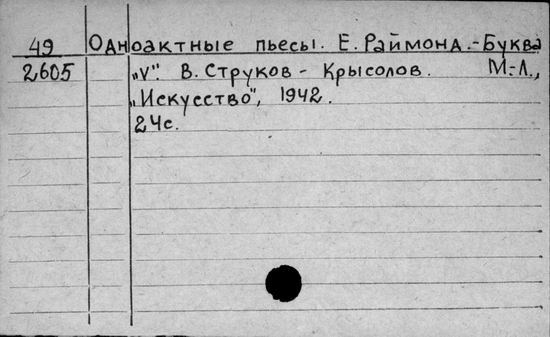 49 Одноактные пьесы. Е. Раймонд.-Буква
2605 „V". В. Струков - Крысолов. М.-Л.,
„Искусство", 1942.
24с.